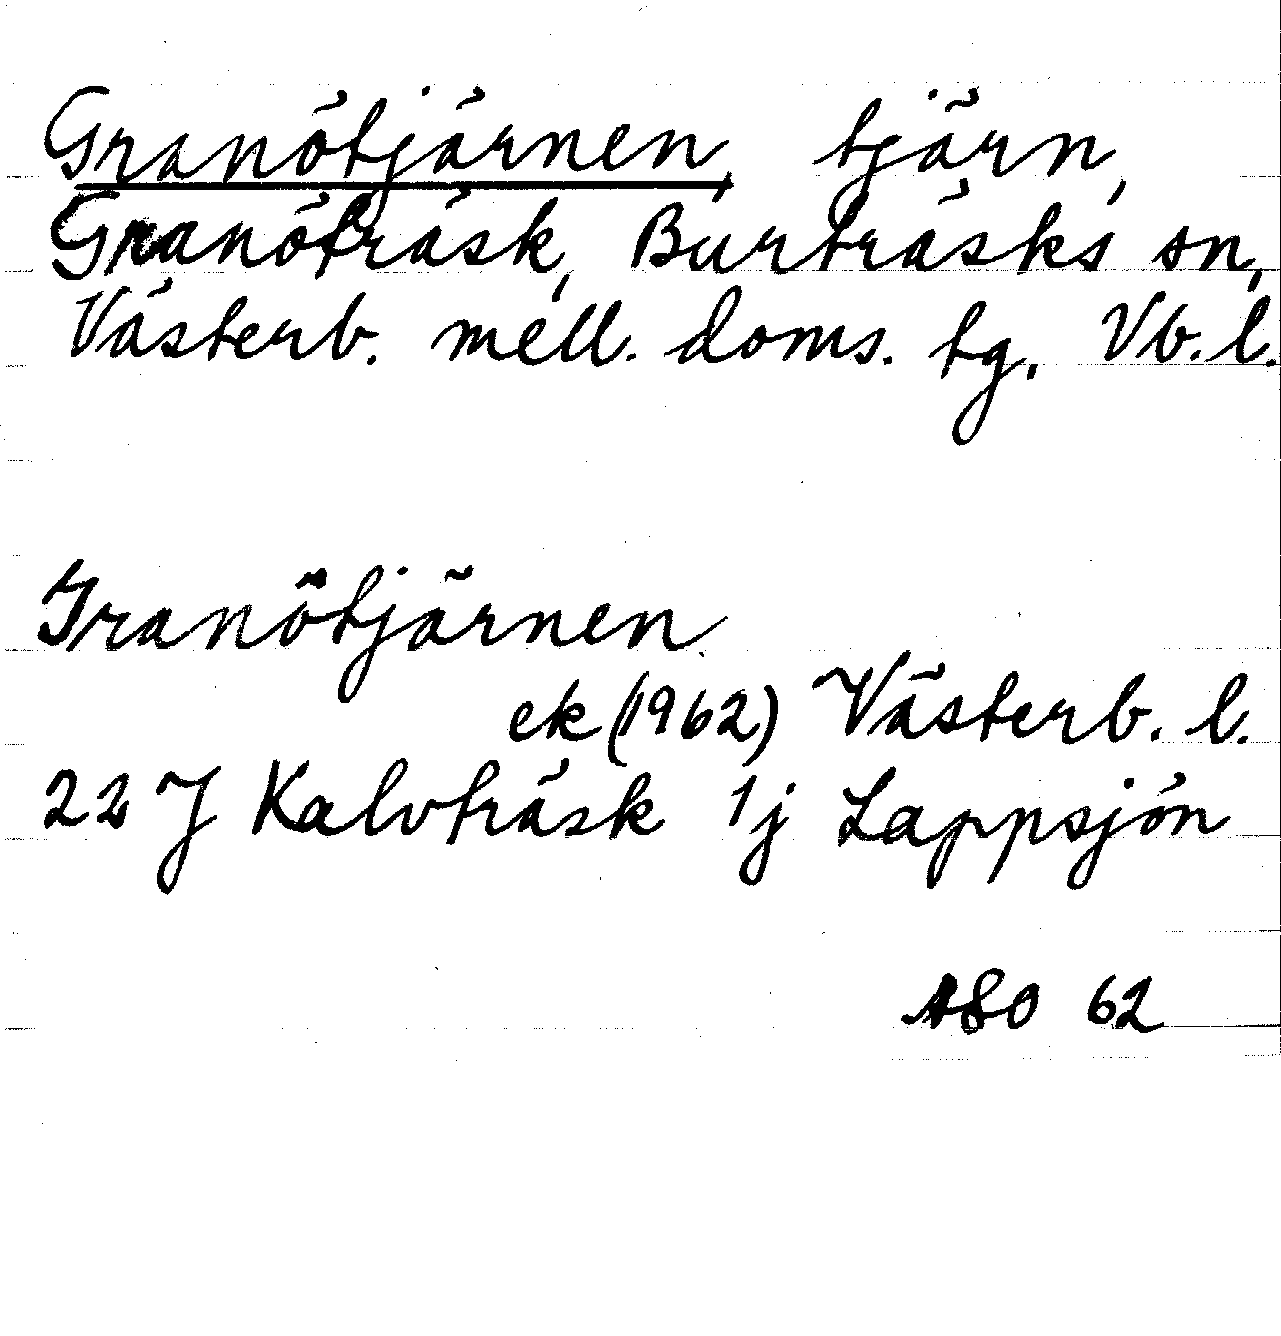 Granötjärnen, tjärn,
Granöträsk, Burträsks sn,
Västerb. mell. doms. tg. Vb. l.
Granötjärnen
ek (1962) Västerb. l.
22 J Kalvträsk 1j Lappsjön
ASO 62